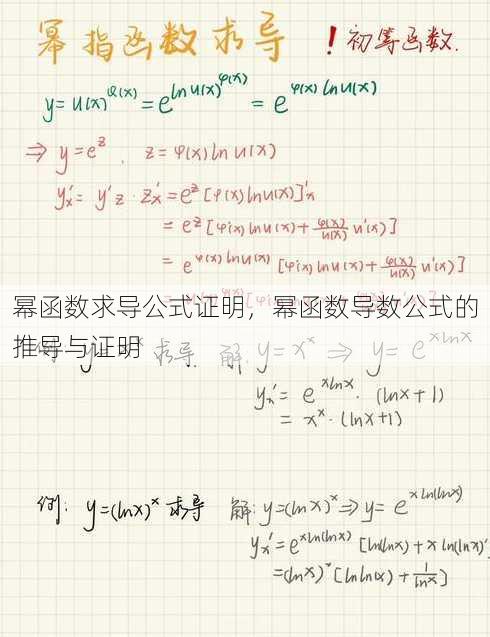 幂指函数求导 ！初等函数.
y=u(x)^φ(x) = e^ln u(x)^φ(x) = e^φ(x) ln u(x)
⇒ y=e^z , z=φ(x) ln u(x)
y'x = y'z · z'x = e^z [φ(x) ln u(x)]'x
= e^z [φ'(x) ln u(x) + φ(x)/u(x) u'(x)]
= e^φ(x) ln u(x) [φ'(x) ln u(x) + φ(x)/u(x) u'(x)]
幂函数求导公式证明，幂函数导数公式的
推导与证明
求导 解: y=x^x ⇒ y= e^xlnx
y'x = e^xlnx · (lnx+1)
= x^x · (lnx+1)
例: y=(lnx)^x 求导 解: y=(lnx)^x ⇒ y= e^xln(lnx)
y'x = e^xln(lnx) [ln(lnx) + x ln(lnx)'
=(lnx)^x [ln ln(x) + 1/lnx]